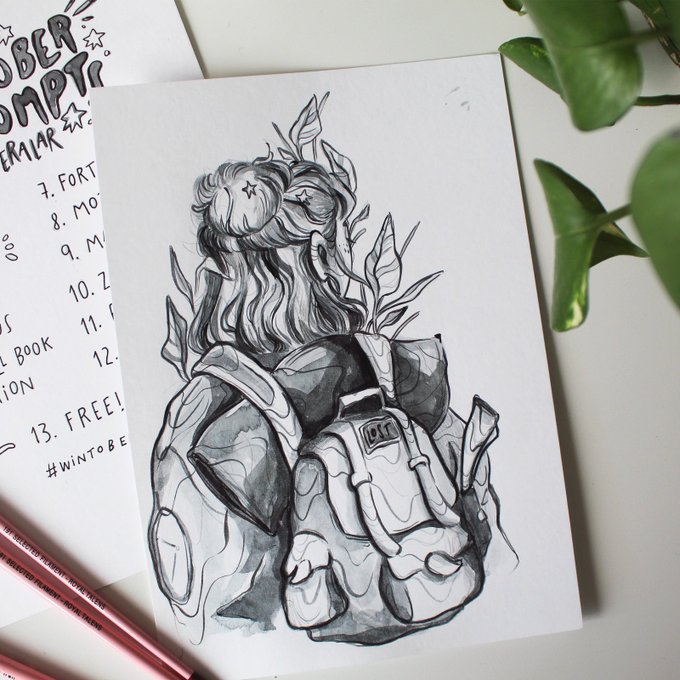 OBER
OMPTS
ERALAR
7. FORT
8. MO
9. M
10.
11.
BOOK
12.
13. FREE!
#WINTOBE
LOST
191-SELECTED-FILAMENT-ROYAL TALENS
SELECTED-FILAMENT-ROYAL TALENS